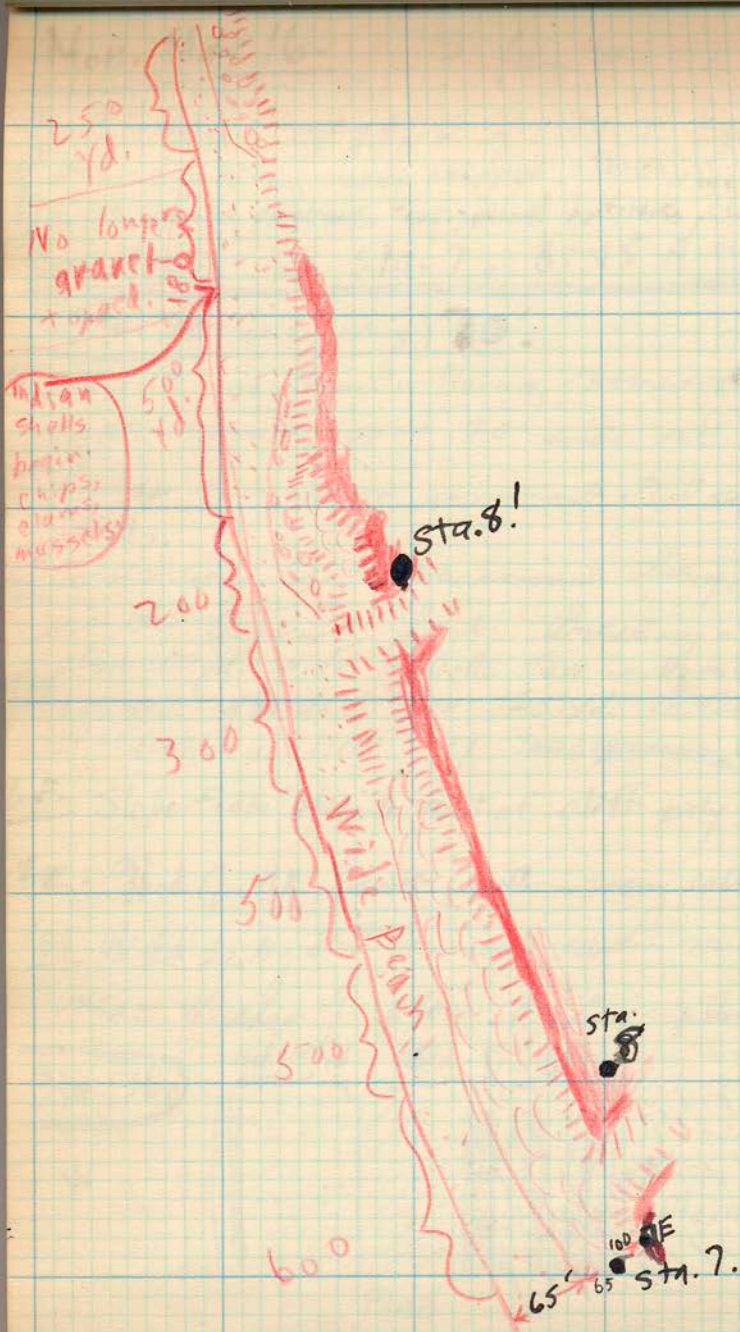 250
yd.
No longer
gravel
180
Indian
shells
begin.
chips,
clams,
mussels.
500
yd.
Sta. 8!
200
300
Wide beach.
500
500
Sta.
8
600
100
E
65
Sta. 7.
65'